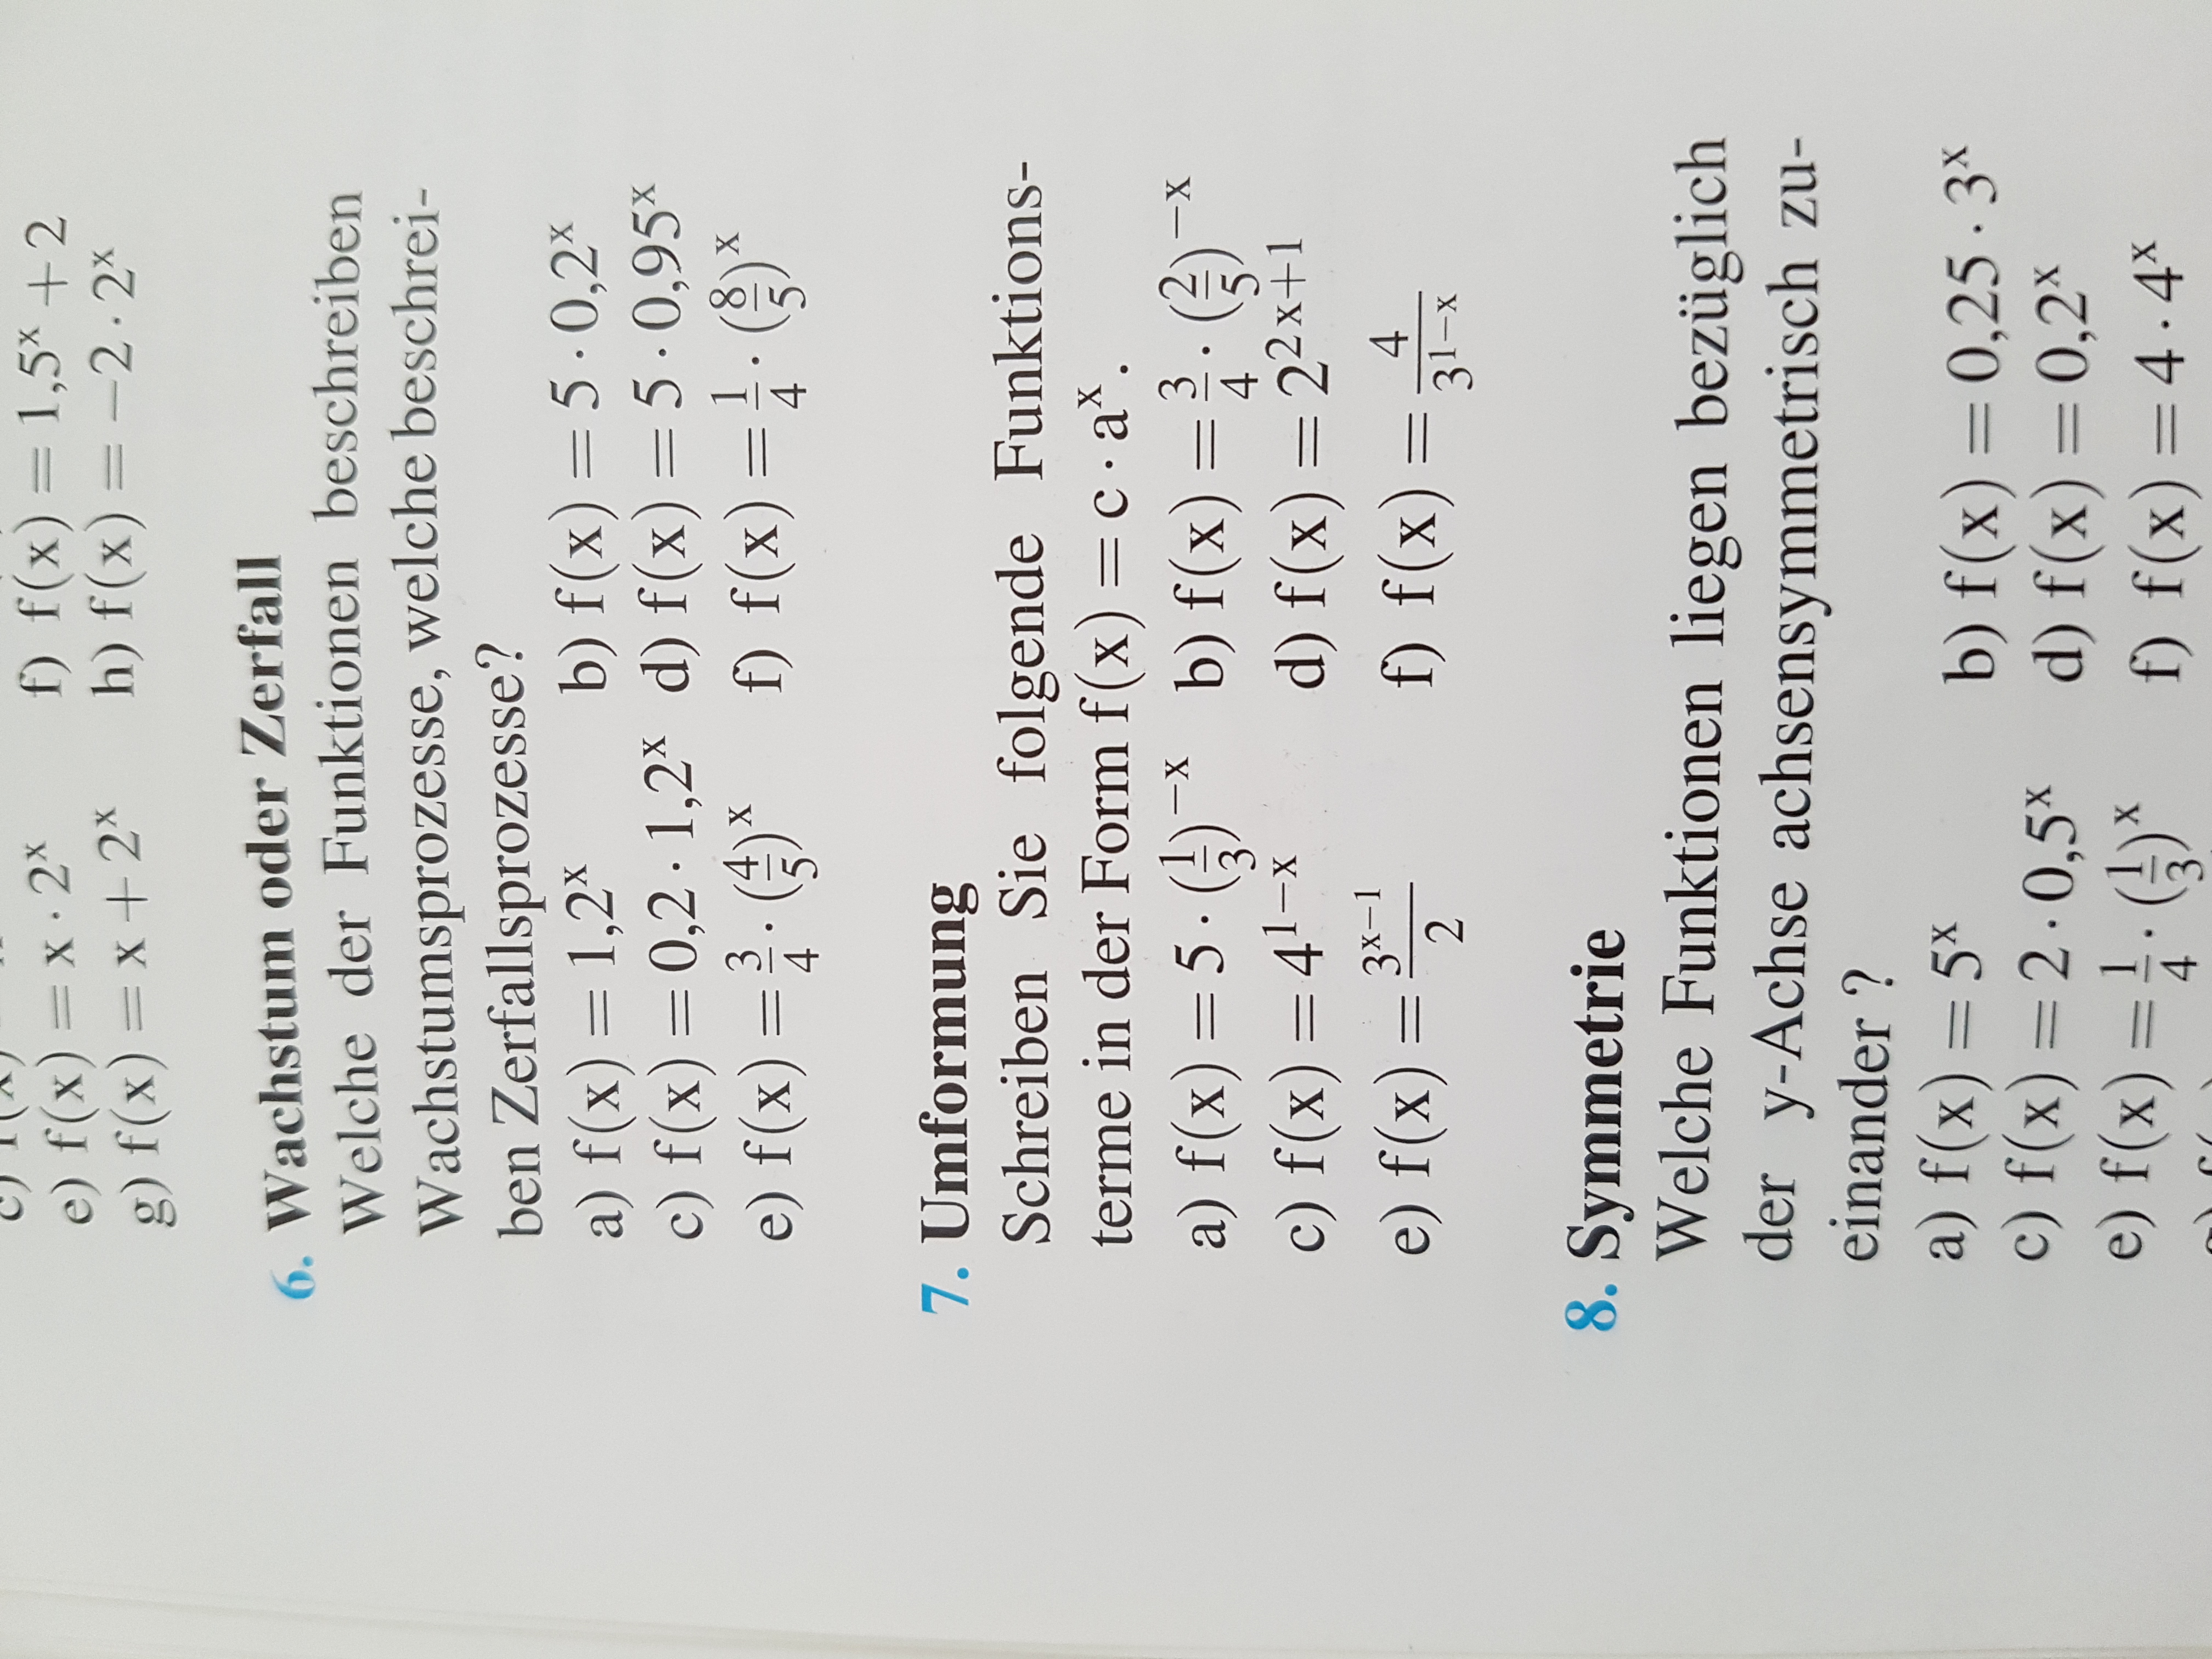 e) f(x) = x · 2ˣ f) f(x) = 1,5ˣ + 2
g) f(x) = x + 2ˣ h) f(x) = −2 · 2ˣ
6. Wachstum oder Zerfall
Welche der Funktionen beschreiben
Wachstumsprozesse, welche beschrei-
ben Zerfallsprozesse?
a) f(x) = 1,2ˣ b) f(x) = 5 · 0,2ˣ
c) f(x) = 0,2 · 1,2ˣ d) f(x) = 5 · 0,95ˣ
e) f(x) = 3/4 · (4/5)ˣ f) f(x) = 1/4 · (8/5)ˣ
7. Umformung
Schreiben Sie folgende Funktions-
terme in der Form f(x) = c · aˣ.
a) f(x) = 5 · (1/3)⁻ˣ b) f(x) = 3/4 · (2/5)⁻ˣ
c) f(x) = 4¹⁻ˣ d) f(x) = 2²ˣ⁺¹
e) f(x) = 3ˣ⁻¹/2 f) f(x) = 4/3¹⁻ˣ
8. Symmetrie
Welche Funktionen liegen bezüglich
der y-Achse achsensymmetrisch zu-
einander ?
a) f(x) = 5ˣ b) f(x) = 0,25 · 3ˣ
c) f(x) = 2 · 0,5ˣ d) f(x) = 0,2ˣ
e) f(x) = 1/4 · (1/3)ˣ f) f(x) = 4 · 4ˣ